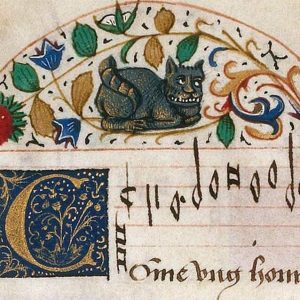 COme vng hom